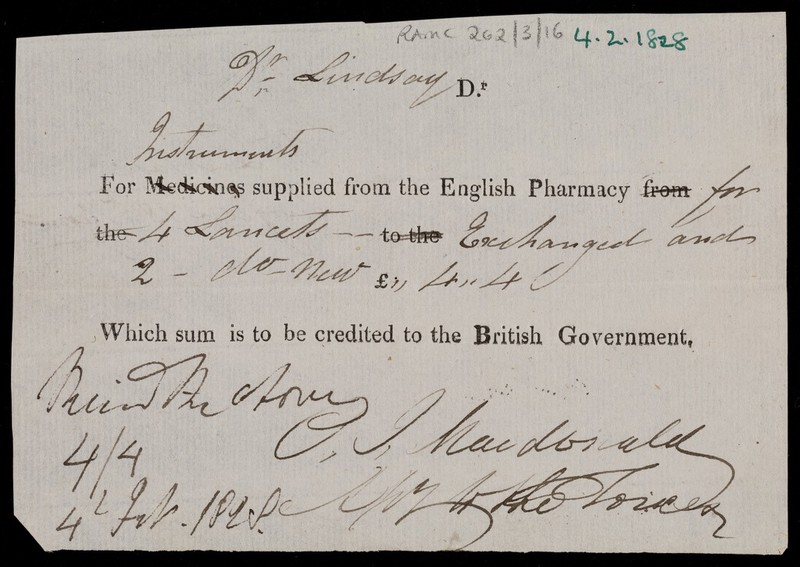 RAMC 262/3/16 4.2.1828
Dr Lindsay D.r
Instruments
For Medicines supplied from the English Pharmacy from for
the 4 Lancets — to the Exchanged and
2 - do - New £ ,, 4 ,, 4
Which sum is to be credited to the British Government.
Rec'd the above
4/4 Macdonald
4th Feb. 1828. to the Forces